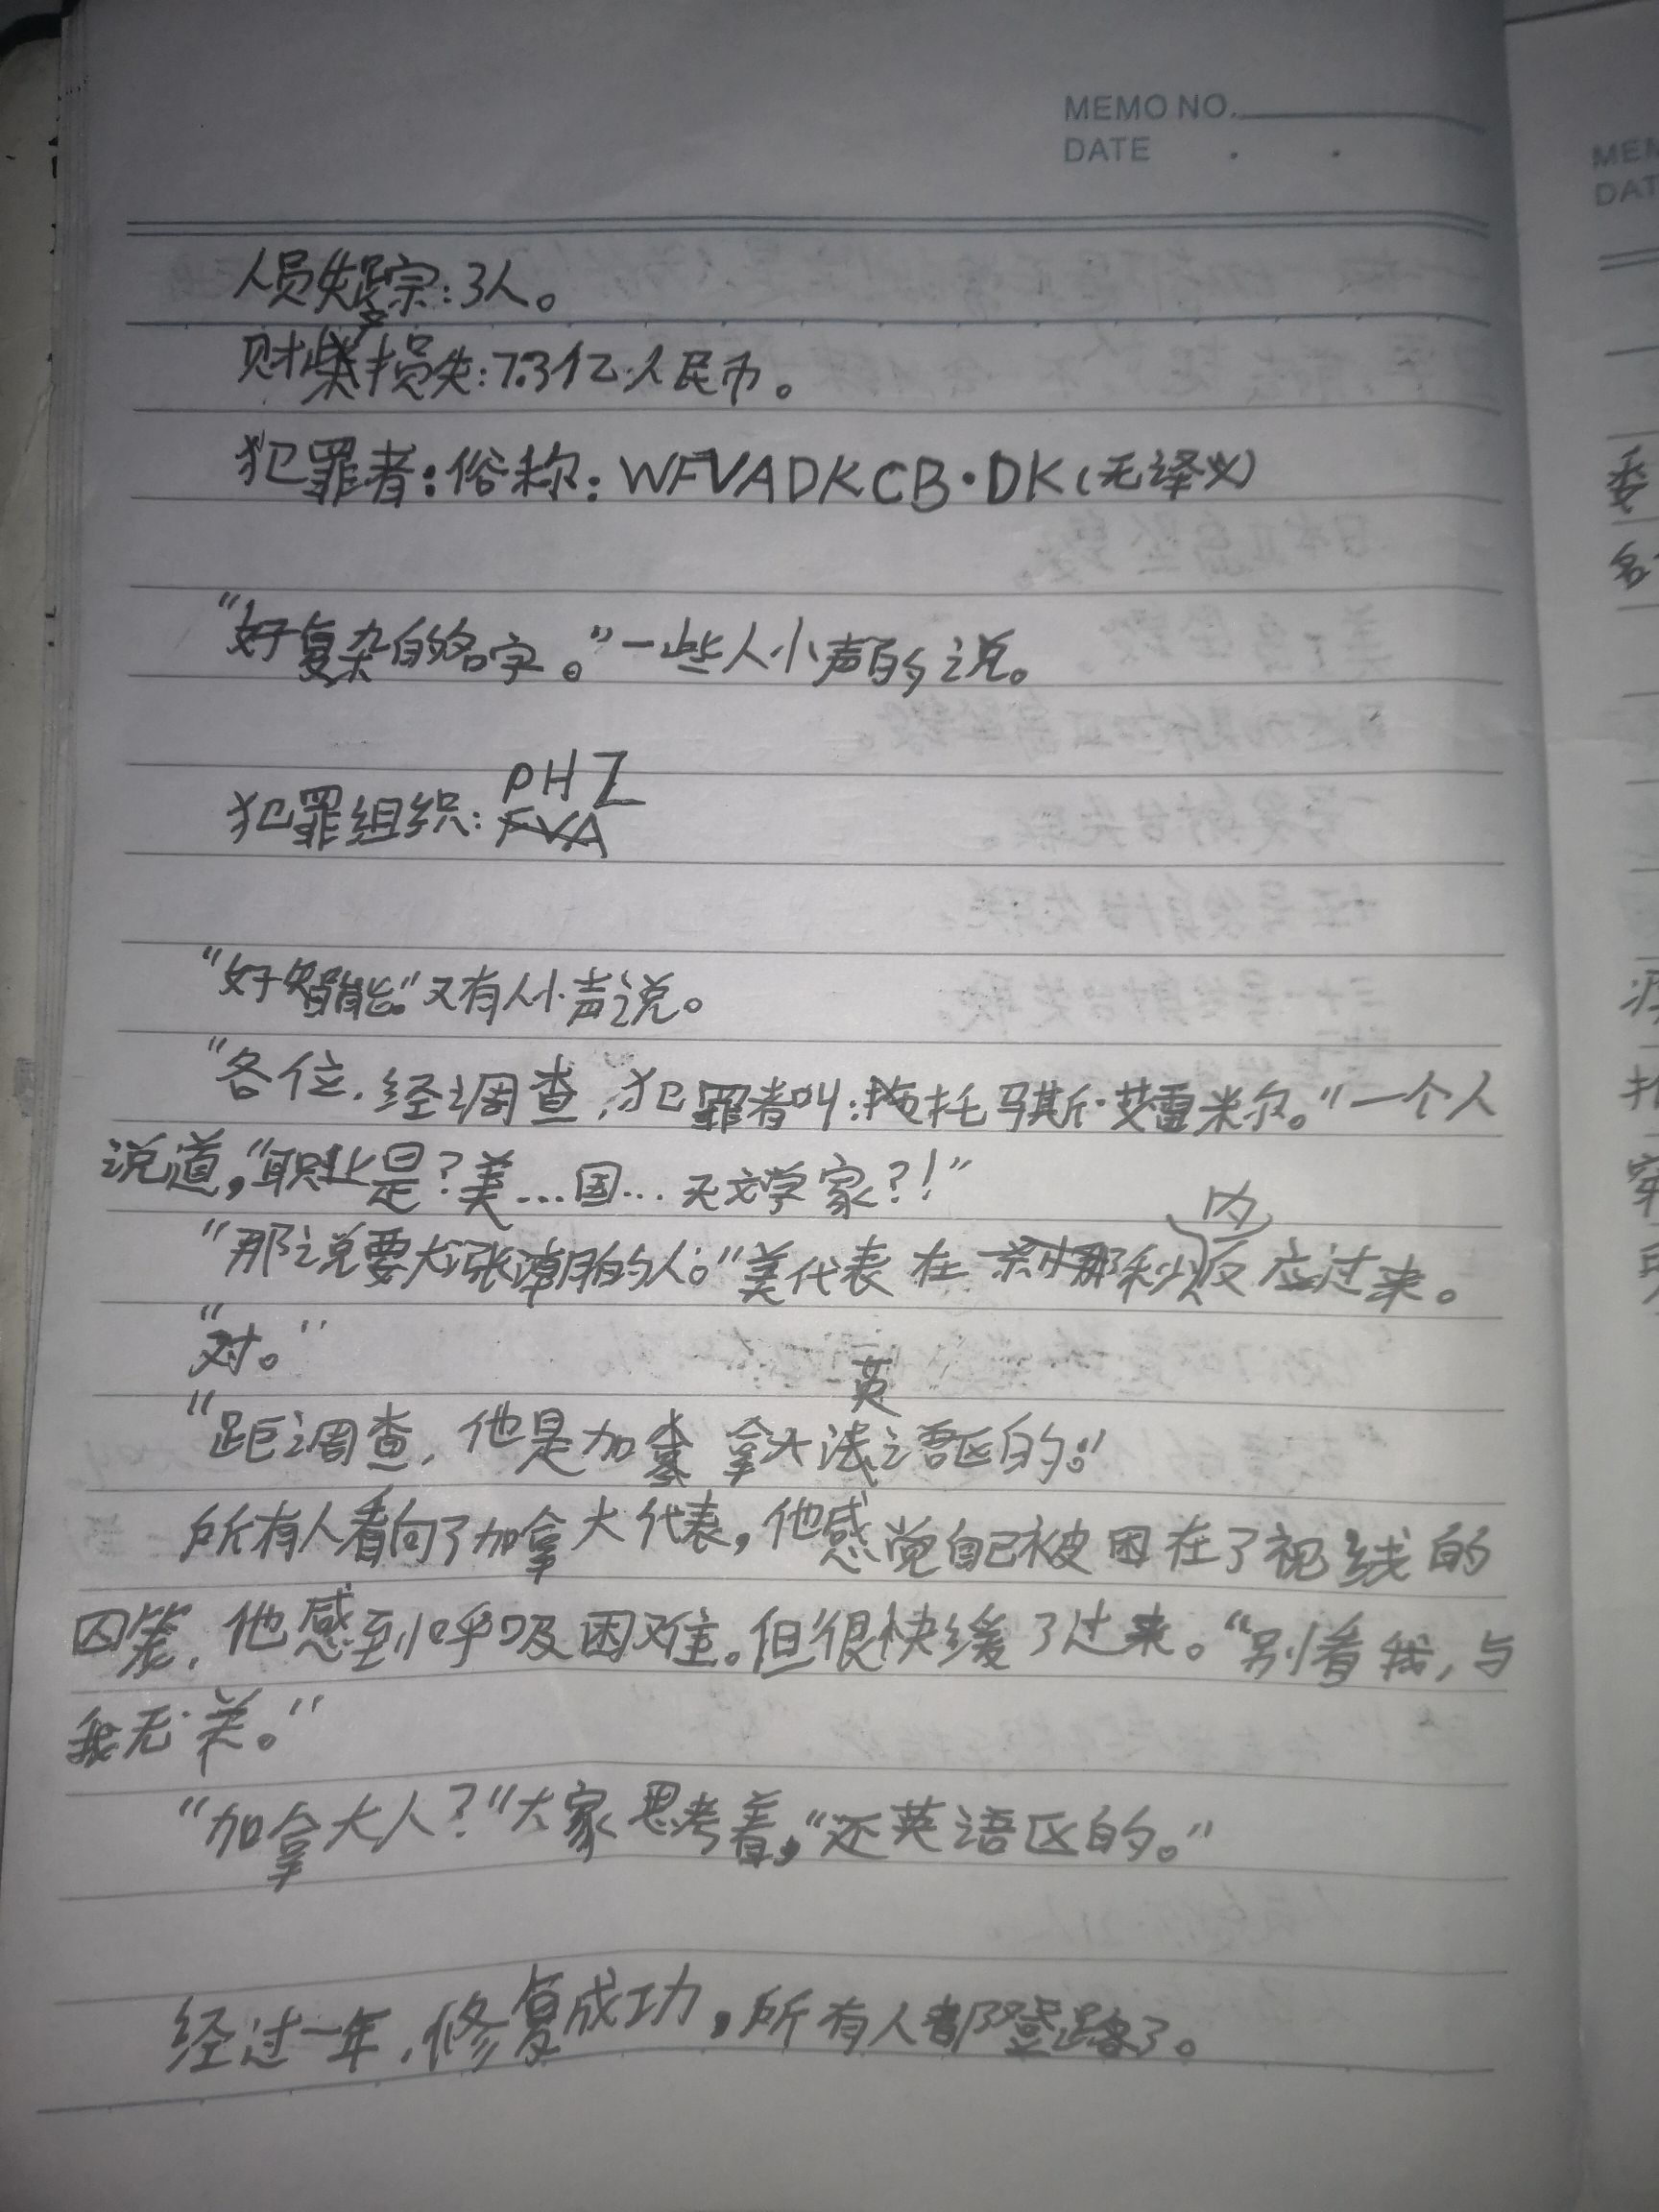 MEMO NO.
DATE . .
MEM
DAT
人员失踪：3人。
财产损失：7.3亿人民币。
犯罪者：俗称：WFVADKCB·DK（无译义）
“好复杂的名字。”一些人小声的说。
犯罪组织：PHZ
“好智能。”又有人小声说。
“各位，经调查，犯罪者叫：托马斯·艾雷米尔。”一个人
说道，“职业是？美…国…天文学家？！”
“那说要大涨潮的人。”美代表在秒内反应过来。
“对。”
“距调查，他是加拿大英语区的。”
所有人看向了加拿大代表，他感觉自己被困在了视线的
囚笼，他感到呼吸困难。但很快缓了过来。“别看我，与
我无关。”
“加拿大人？”大家思考着，“还英语区的。”
经过一年，修复成功，所有人都登路了。
委
名